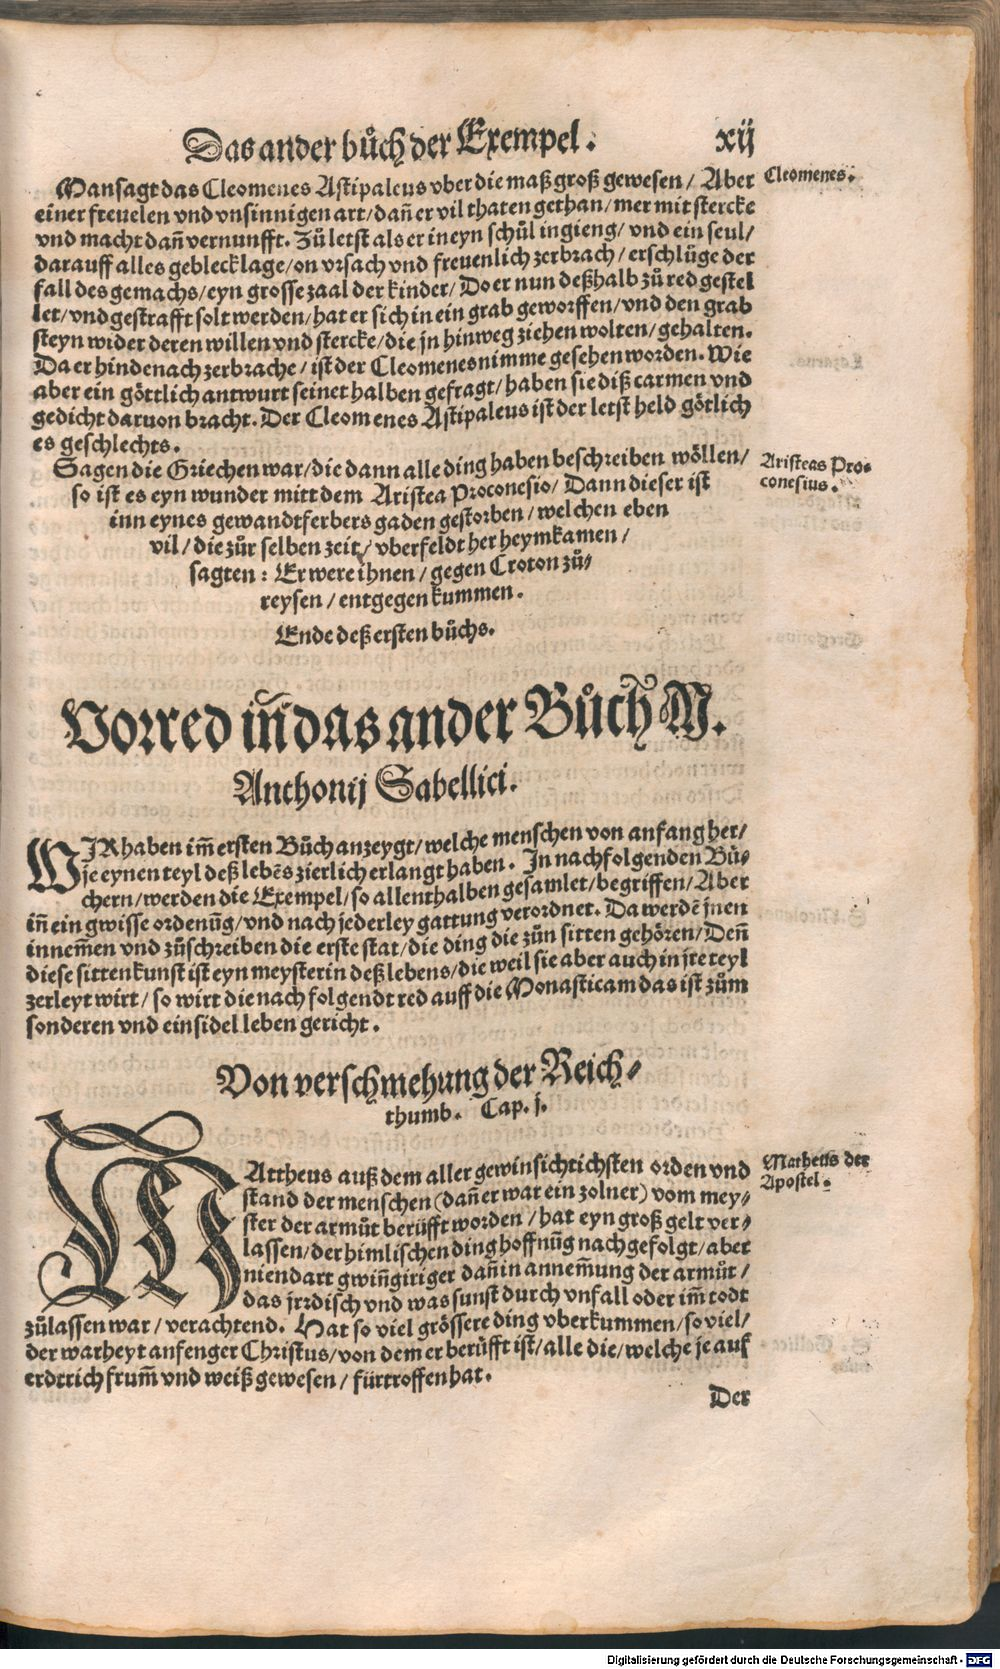 Das ander bůch der Exempel. xij
Man sagt das Cleomenes Astipaleus vber die maß groß gewesen / Aber
Cleomenes.
einer freuelen vnd vnsinnigen art / dañ er vil thaten gethan / mer mit stercke
vnd macht dañ vernunfft. Zů letst als er in eyn schůl ingieng / vnd ein seul /
darauff alles geblecklage / on vrsach vnd freuenlich zerbrach / erschlůge der
fall des gemachs / eyn grosse zaal der kinder / Do er nun deßhalb zů red gestel
let / vnd gestrafft solt werden / hat er sich in ein grab geworffen / vnd den grab
steyn wider deren willen vnd stercke / die jn hinweg ziehen wolten / gehalten.
Da er hindenach zerbrache / ist der Cleomenes nimme gesehen worden. Wie
aber ein göttlich antwurt seinet halben gefragt / haben sie diß carmen vnd
gedicht daruon bracht. Der Cleomenes Astipaleus ist der letst held götlich
es geschlechts.
Sagen die Griechen war / die dann alle ding haben beschreiben wöllen /
Aristeas Pro⸗
so ist es eyn wunder mitt dem Aristea Proconesio / Dann dieser ist
conesius.
inn eynes gewandtferbers gaden gestorben / welchen eben
vil / die zůr selben zeit / vberfeldt her heymkamen /
sagten : Er were ihnen / gegen Croton zů⸗
reysen / entgegen kummen.
Ende deß ersten bůchs.
Vorred iñ das ander Bůch M.
Anthonij Sabellici.
WIR haben im̃ ersten Bůch anzeygt / welche menschen von anfang her /
je eynen teyl deß lebẽs zierlich erlangt haben. In nachfolgenden Bü⸗
chern / werden die Exempel / so allenthalben gesamlet / begriffen / Aber
iñ ein gwisse ordenũg / vnd nach jederley gattung verordnet. Da werdẽ jnen
innem̃en vnd zůschreiben die erste stat / die ding die zůn sitten gehören / Deñ
diese sittenkunst ist eyn meysterin deß lebens / die weil sie aber auch in jre teyl
zerleyt wirt / so wirt die nachfolgendt red auff die Monasticam das ist zům
sonderen vnd einsidel leben gericht.
Von verschmehung der Reich⸗
thumb. Cap. j.
MAttheus auß dem aller gewinsichtichsten orden vnd
Matheus der
stand der menschen (dañ er war ein zolner) vom mey⸗
Apostel.
ster der armůt berüfft worden / hat eyn groß gelt ver⸗
lassen / der himlischen ding hoffnũg nachgefolgt / aber
niendart gwiñgiriger dañ in annem̃ung der armůt /
das jrrdisch vnd was sunst durch vnfall oder im̃ todt
zůlassen war / verachtend. Hat so viel grössere ding vberkummen / so viel /
der warheyt anfenger Christus / von dem er berüfft ist / alle die / welche je auf
erdtrich frum̃ vnd weiß gewesen / fürtroffen hat.
Der
Digitalisierung gefördert durch die Deutsche Forschungsgemeinschaft - DFG